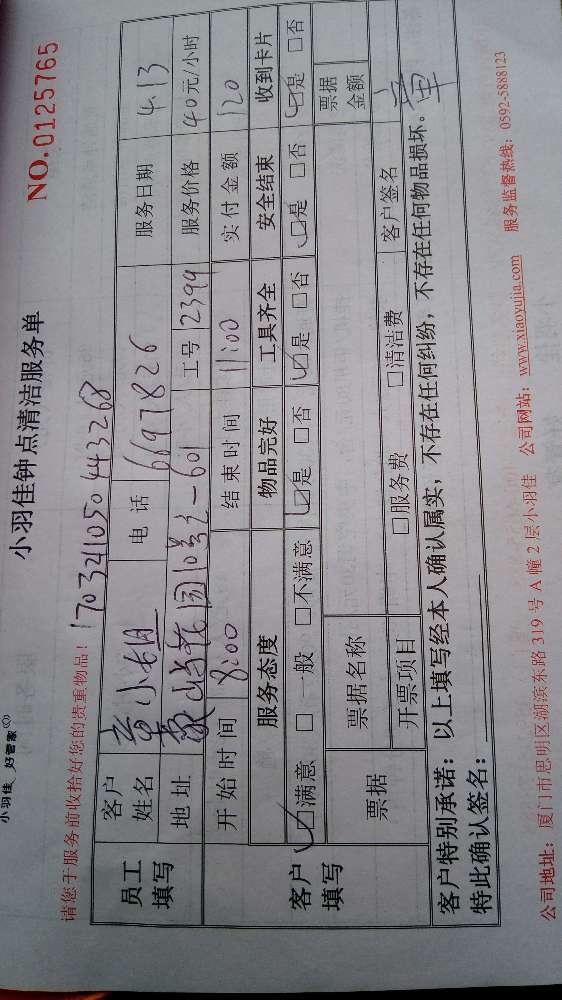 小羽佳 好管家(C)
小羽佳钟点清洁服务单
NO.0125765
请您于服务前收拾好您的贵重物品! 170324105044 3268
员工填写 客户姓名 章小姐 电话 6697826 服务日期 4.13
地址 花园10号之-601 工号 2399 服务价格 40元/小时
开始时间 8:00 结束时间 11:00 实付金额 120
客户填写 服务态度 物品完好 工具齐全 安全结束 收到卡片
☑满意 □一般 □不满意 ☑是 □否 ☑是 □否 ☑是 □否 ☑是 □否
票据 票据名称 票据金额
开票项目 □服务费 □清洁费 客户签名 章
客户特别承诺:以上填写经本人确认属实,不存在任何纠纷,不存在任何物品损坏。
特此确认签名:
公司地址:厦门市思明区湖滨东路319号A幢2层小羽佳 公司网站:www.xiaoyujia.com 服务监督热线:0592-5888123